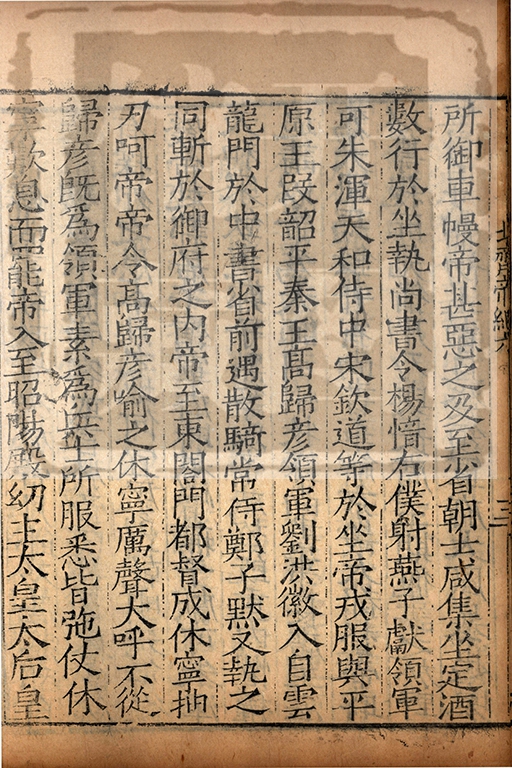 北齊帝紀六
三
所御車幔帝甚惡之及至省朝士咸集坐定酒
數行於坐執尚書令楊愔右僕射燕子獻領軍
可朱渾天和侍中宋欽道等於坐帝戎服與平
原王段韶平秦王高歸彥領軍劉洪徽入自雲
龍門於中書省前遇散騎常侍鄭子默又執之
同斬於御府之內帝至東閤門都督成休寧抽
刃呵帝帝令高歸彥喻之休寧厲聲大呼不從
歸彥旣爲領軍素爲兵士所服悉皆弛仗休
寧歎息而罷帝入至昭陽殿幼主太皇太后皇